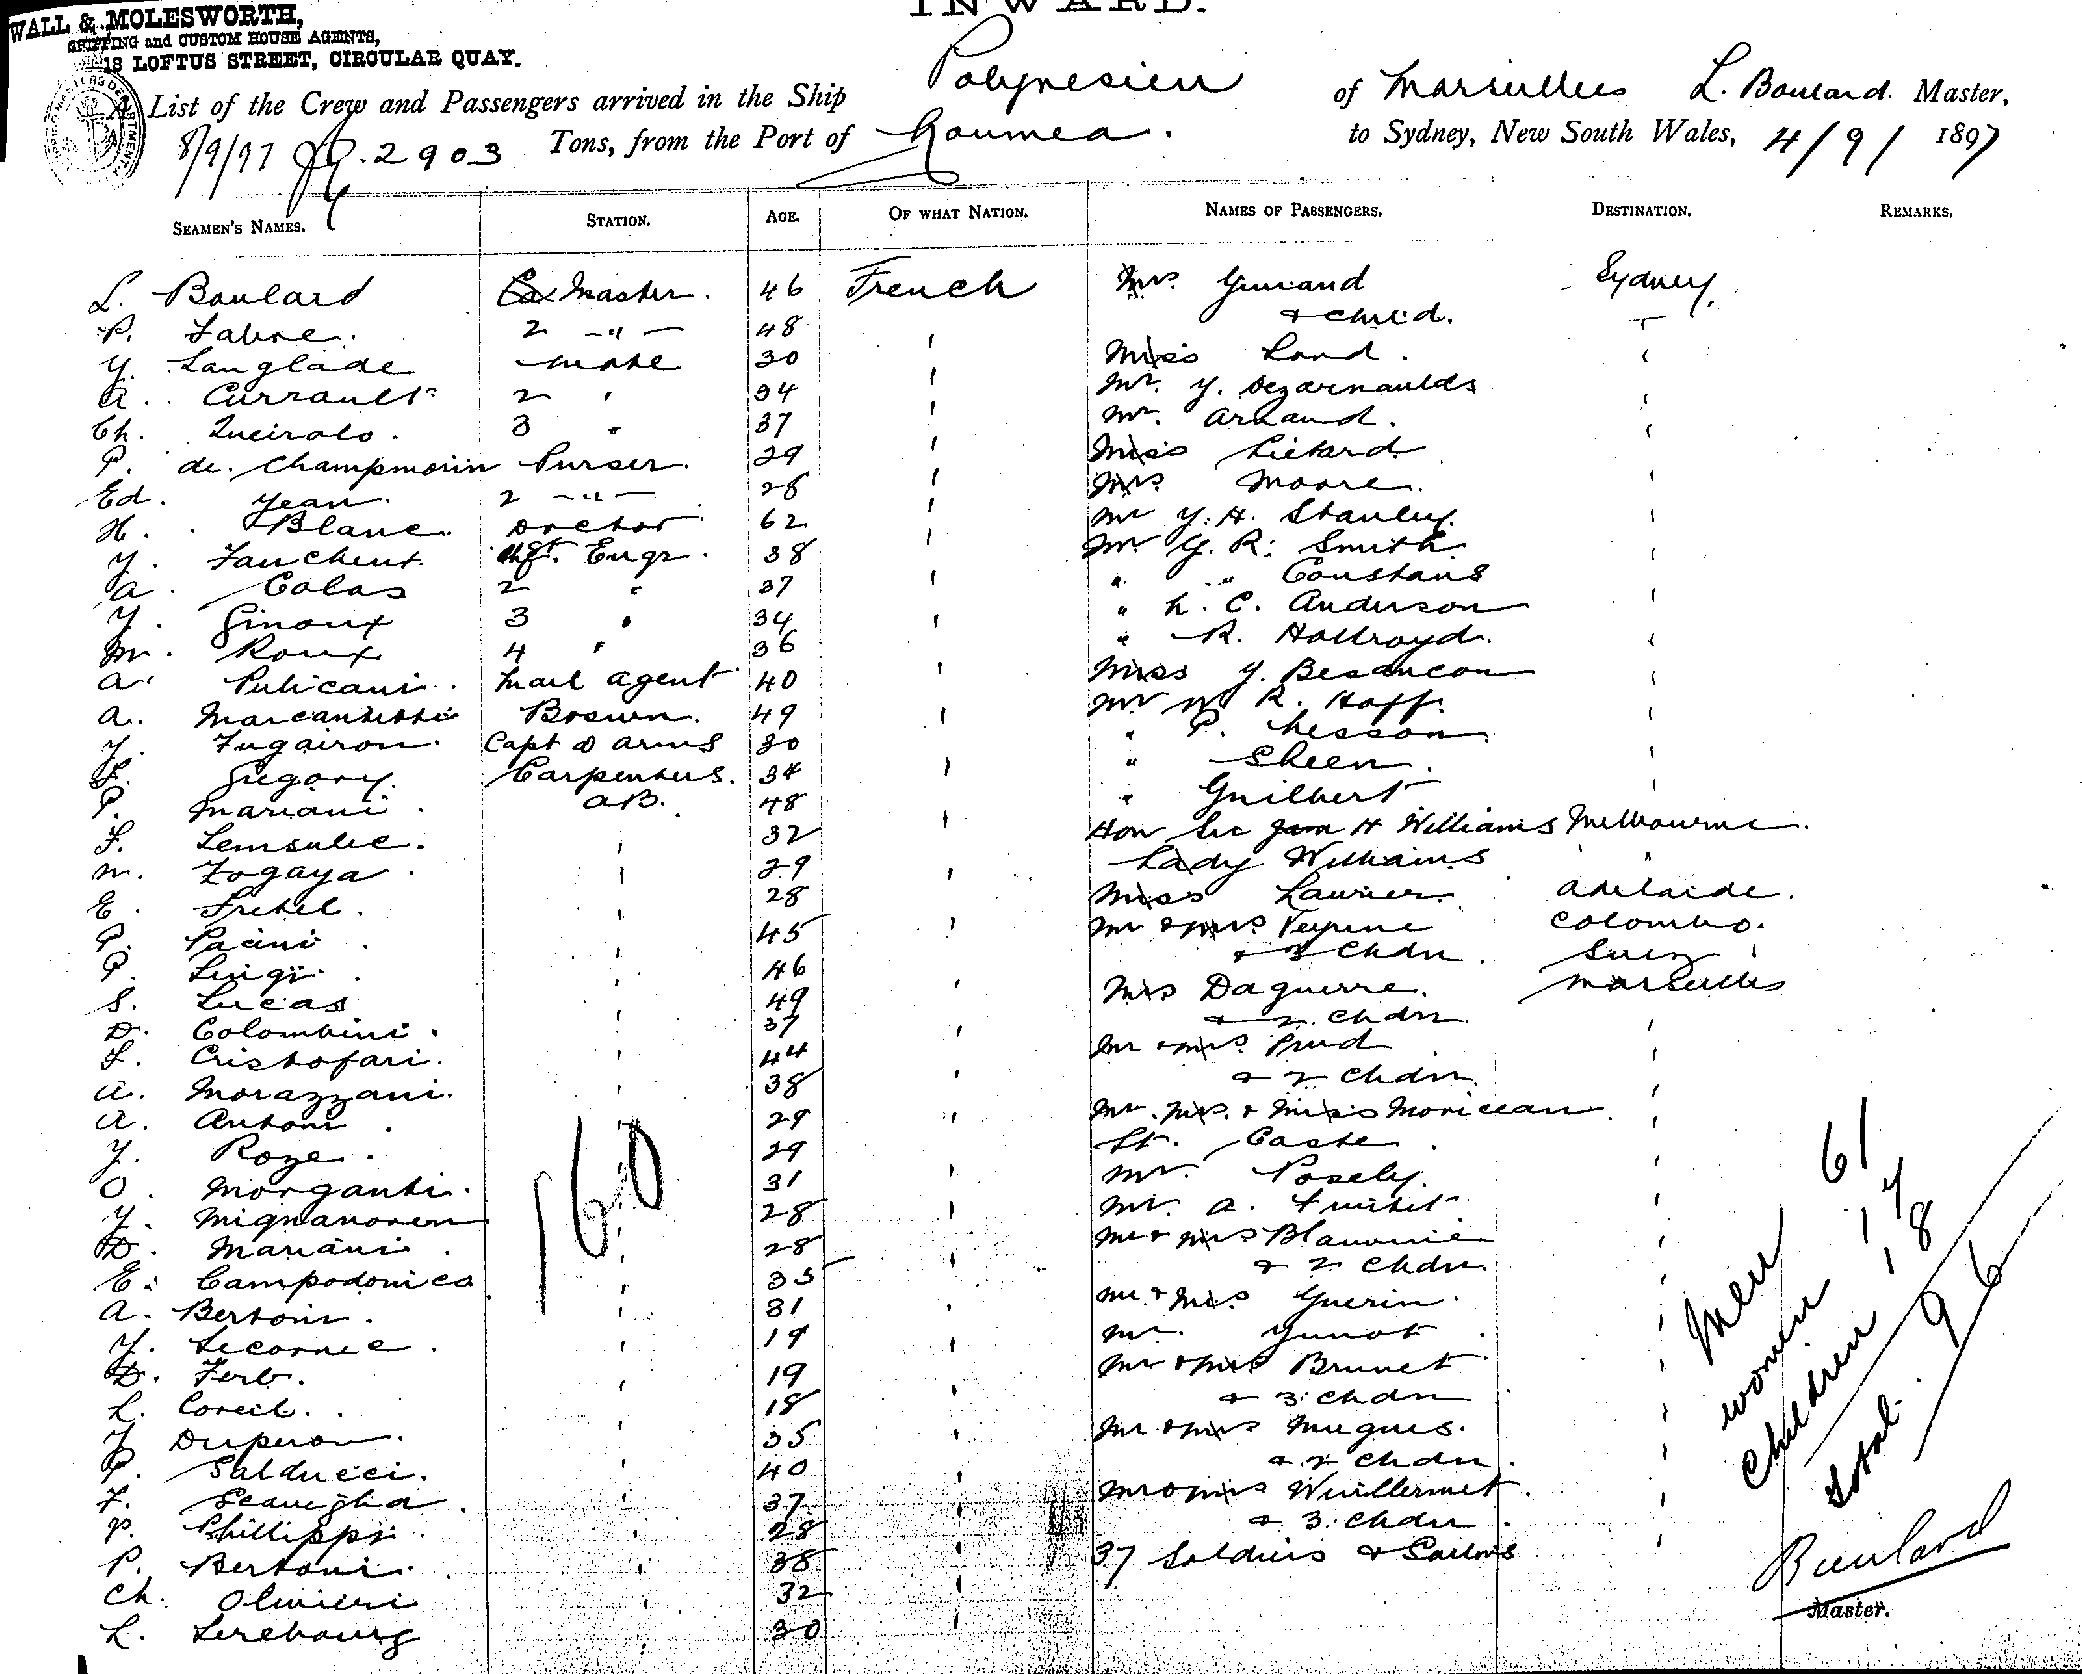 INWARD.
WALL & MOLESWORTH,
SHIPPING and CUSTOM HOUSE AGENTS,
18 LOFTUS STREET, CIRCULAR QUAY.
A List of the Crew and Passengers arrived in the Ship Polynesien of Marseilles L. Boulard Master,
8/9/97 2903 Tons, from the Port of Noumea. to Sydney, New South Wales, 4/9/ 1897
SEAMEN'S NAMES. STATION. AGE. OF WHAT NATION. NAMES OF PASSENGERS. DESTINATION. REMARKS.
L. Boulard Master. 46 French Mrs Sydney.
P. Fabre. 2 -"- 48 & child.
Y. Langlade mate 30 Miss Lond.
A. Currault 2 " 34 Mr. Y. Dezarnaulds
Ch. Queirolo. 3 " 37 Mr. Arnaud.
P. de. Champmorin Purser. 29 Miss
Ed. Yean. 2 -"- 28 Mrs Moore.
H. Blanc. Doctor 62 Mr Y. H. Stanley.
Y. Engr. 38 Mr. G. R. Smith
A. Colas 2 " 37 " " Constans
Y. Ginoux 3 " 34 " L. C. Anderson
M. Roux 4 " 36 " R. Hollroyd.
A. Pulicani. Mail agent 40 Miss Y. Besancon
A. Boswn. 49 Mr R. Hoff.
Y. Fugairon. Capt d arms 30 " P. Nesson
F. Gregory. Carpenters. 34 " Sheen.
P. Mariani. AB. 48 " Guilbert
F. 32 Hon Sir H Williams Melbourne.
M. Zogaya. 29 Lady Williams "
E. Fretel. 28 Miss Laurier. Adelaide.
P. Pacini. 45 Mr & Mrs Colombo.
P. Luigi. 46 & 3 Chdn. Suez
S. Lucas 49 Mrs Daguerre. Marseilles
D. Colombini. 37 & 2 chdn
F. Cristofari. 44 Mr & Mrs. Prud
A. Morazzani. 38 & 2 Chdn.
A. Antoni. 29 Mr. Mrs. & Miss Moriceau.
Y. Roze. 29 Lt. Caste.
O. Morganti. 31 Mr.
Y. 28 Mr. A.
D. Mariani. 28 Mr & Mrs
E. Campodonico 35 & 2 Chdn
A. Bertoni. 31 Mr & Mrs Guerin.
Y. Lecornec. 19 Mr. Yunot.
D. Ferb. 19 Mr & Mrs Brunet
L. Coreil. 18 & 3 chdn
Y Duperon. 35 Mr & Mrs Mugues.
P. Salducci. 40 & 2 Chdn.
F. 37 Mr & Mrs Wuillermet.
P. Phillippi. 28 & 3 Chdn.
P. Bertoni. 38 37 Soldiers & Sailors
Ch. Olivieri 32
L. Lerebourg 30
160
Men 61
women 17
Children 18
Total. 96
Boulard
Master.